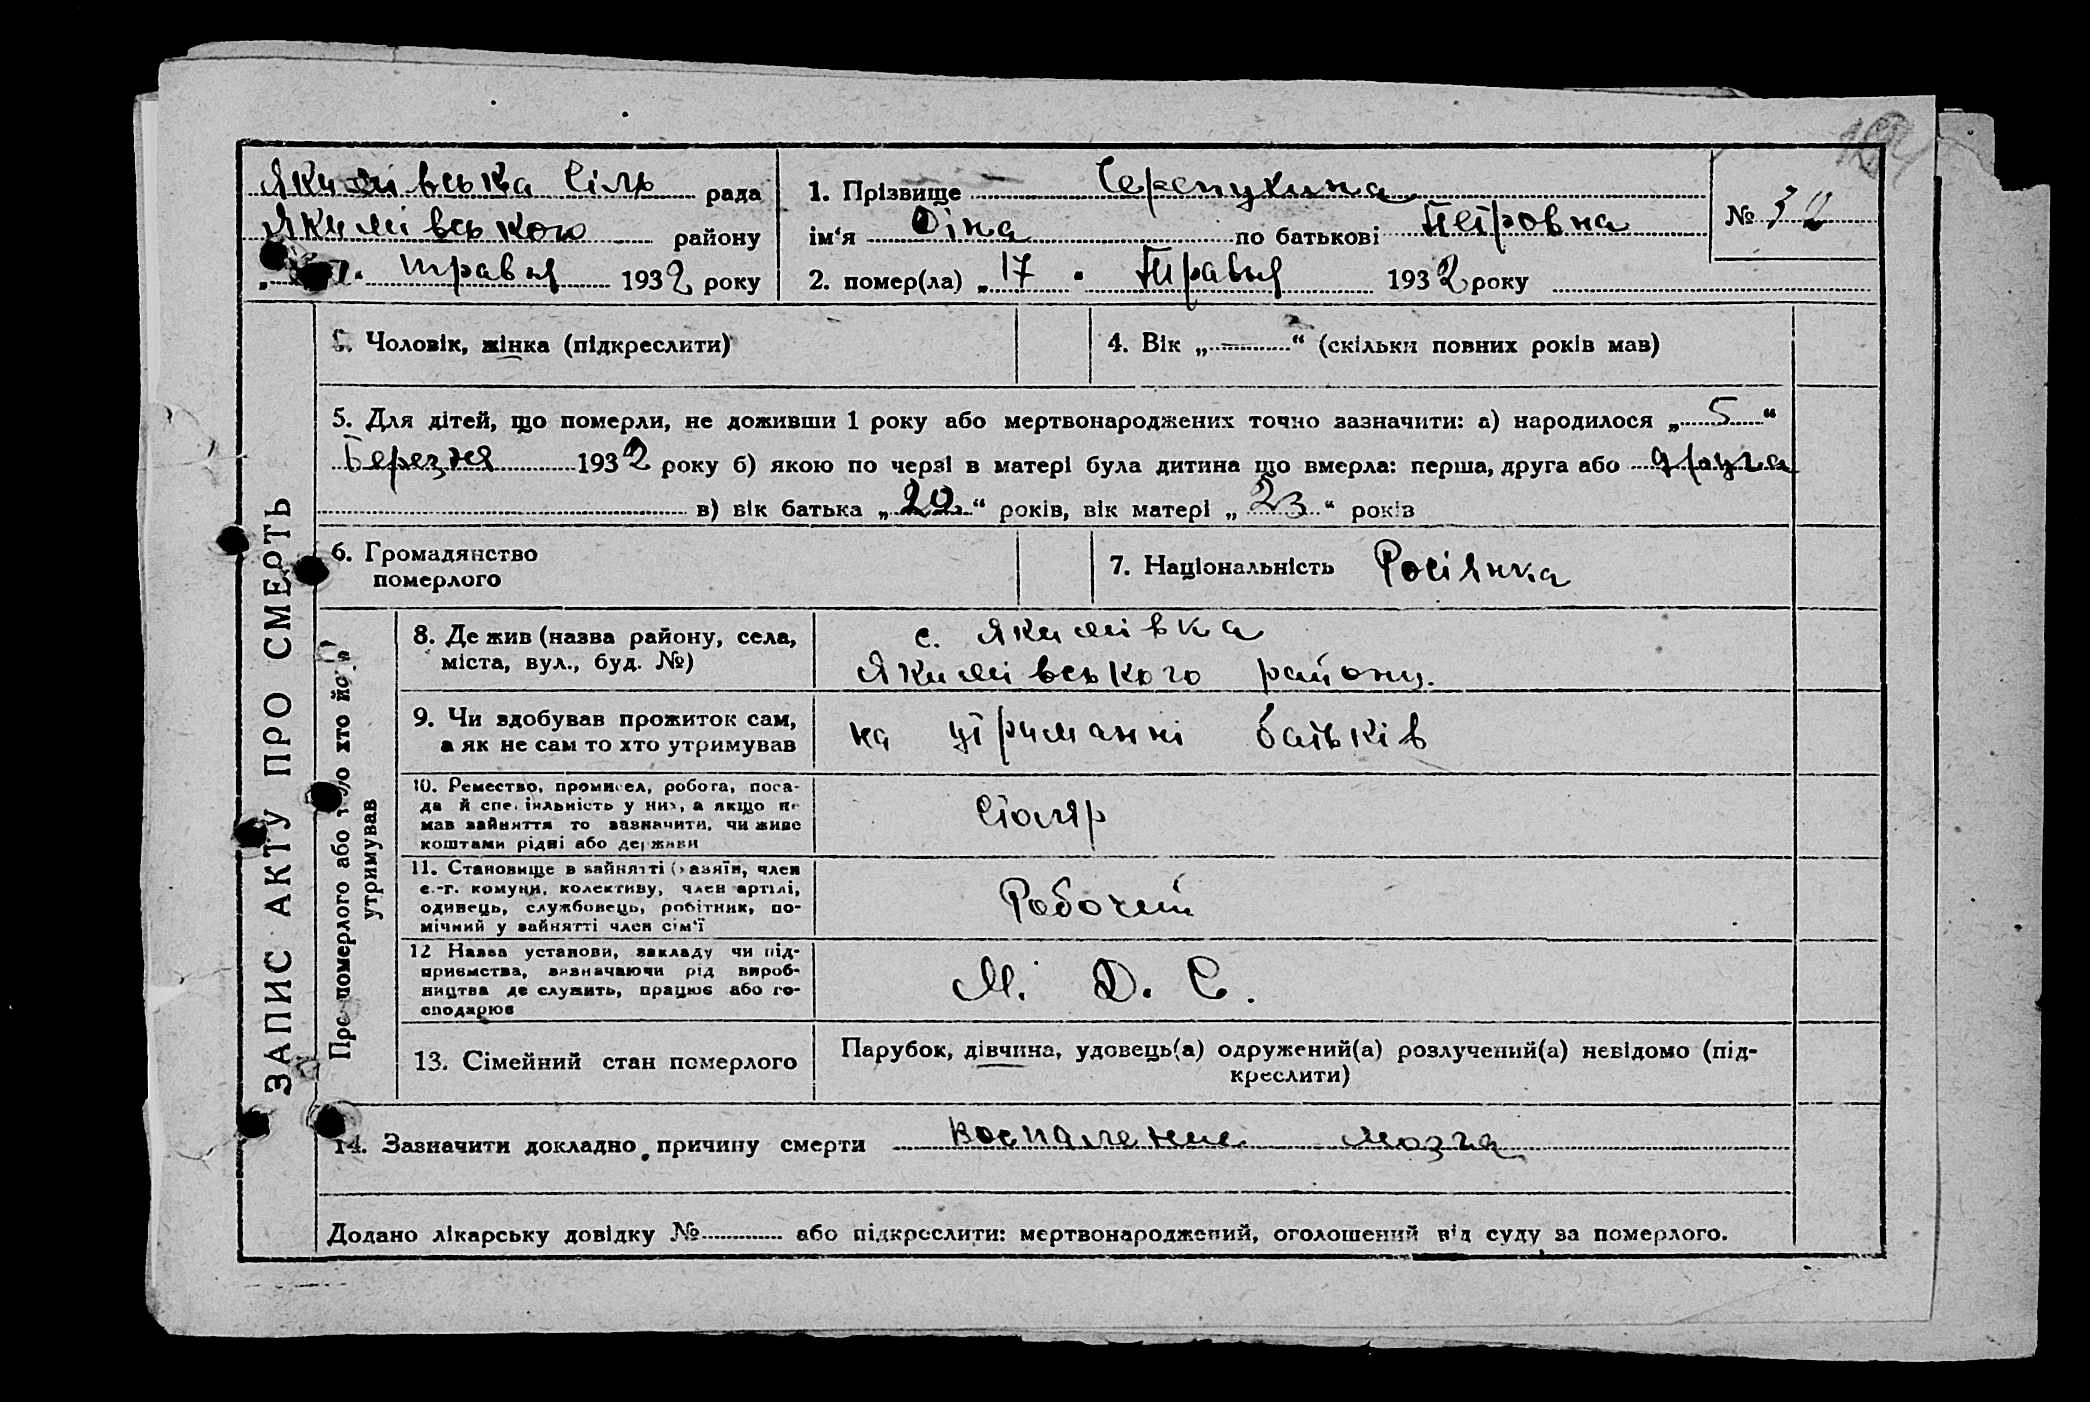 Якимівська Сіль рада
Якимівського району
травня 1932 року
1. Прізвище Черепухина
ім'я Діна по батькові Петровна
№ 32
2. помер(ла) „17" Травня 1932 року
ЗАПИС АКТУ ПРО СМЕРТЬ
3. Чоловік, жінка (підкреслити)
4. Вік „ “ (скільки повних років мав)
5. Для дітей, що померли, не доживши 1 року або мертвонароджених точно зазначити: а) народилося „5“
Березня 1932 року б) якою по черзі в матері була дитина що вмерла: перша, друга або друга
в) вік батька „20“ років, вік матері „23“ років
6. Громадянство
померлого
7. Національність Росіянка
Про померлого або того хто його
утримував
8. Де жив (назва району, села,
міста, вул., буд. №)
с. Якимівка
Якимівського району.
9. Чи здобував прожиток сам,
а як не сам то хто утримував
на утриманні батьків
10. Ремество, промисел, робота, поса-
да й спеціяльність у них, а якщо не
мав зайняття то зазначити, чи живе
коштами рідні або держави
Столяр
11. Становище в зайнятті (хазяїн, член
с.-г. комуни, колективу, член артілі,
одинець, службовець, робітник, по-
мічний у зайнятті член сім'ї
Робочий
12 Назва установи, закладу чи під-
приємства, зазначаючи рід вироб-
ництва де служить, працює або го-
сподарює
М. Д. С.
13. Сімейний стан померлого
Парубок, дівчина, удовець(а) одружений(а) розлучений(а) невідомо (під-
креслити)
14. Зазначити докладно причину смерти воспаление мозга
Додано лікарську довідку № або підкреслити: мертвонароджений, оголошений від суду за померлого.